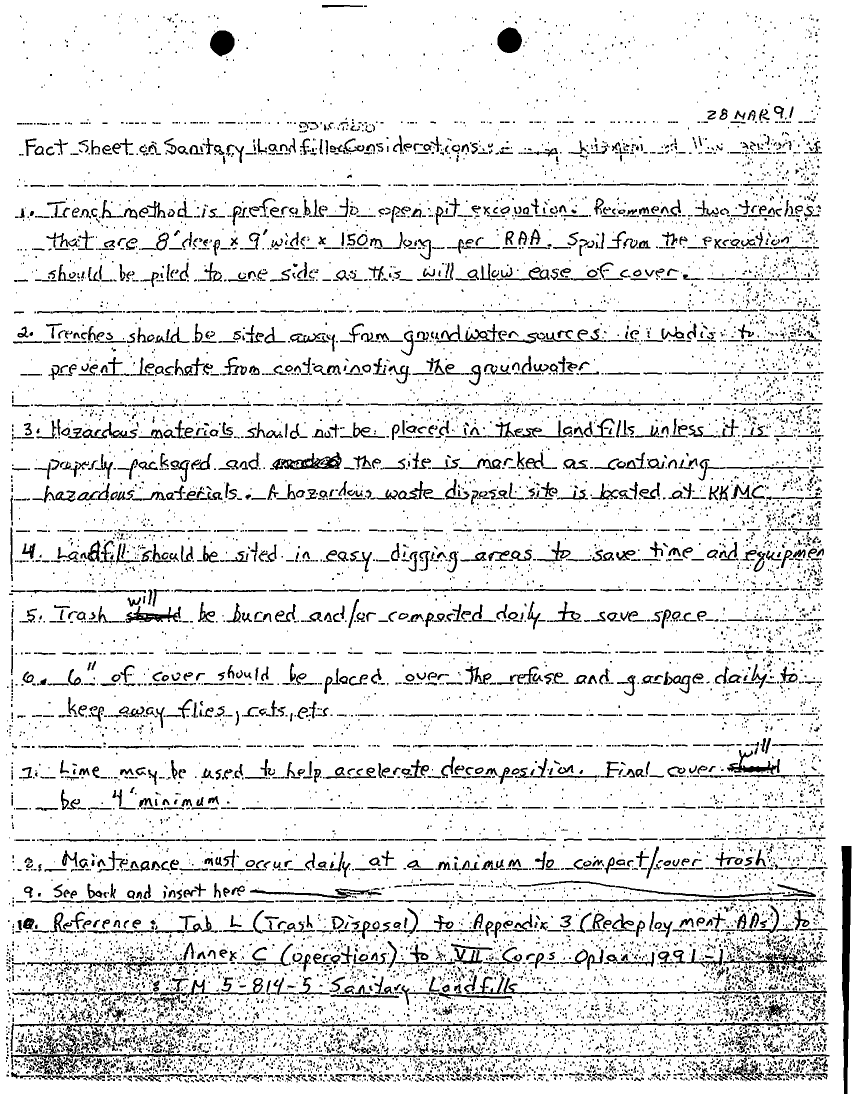 28 MAR 91
Fact Sheet on Sanitary Landfill Considerations
1. Trench method is preferable to open pit excavation. Recommend two trenches
that are 8' deep x 9' wide x 150m long per RAA. Spoil from the excavation
should be piled to one side as this will allow ease of cover.
2. Trenches should be sited away from groundwater sources ie: Wadis to
prevent leachate from contaminating the groundwater.
3. Hazardous materials should not be placed in these landfills unless it is
properly packaged and the site is marked as containing
hazardous materials. A hazardous waste disposal site is located at KKMC.
4. Landfill should be sited in easy digging areas to save time and equipmen
will
5. Trash should be burned and/or compacted daily to save space
6. 6" of cover should be placed over the refuse and garbage daily to
keep away flies, rats, etc
will
7. Lime may be used to help accelerate decomposition. Final cover should
be 4' minimum.
8. Maintenance must occur daily at a minimum to compact/cover trash
9. See back and insert here
10. Reference: Tab L (Trash Disposal) to Appendix 3 (Redeployment AAs) to
Annex C (operations) to VII Corps Oplan 1991-1
: TM 5-814-5 Sanitary Landfills